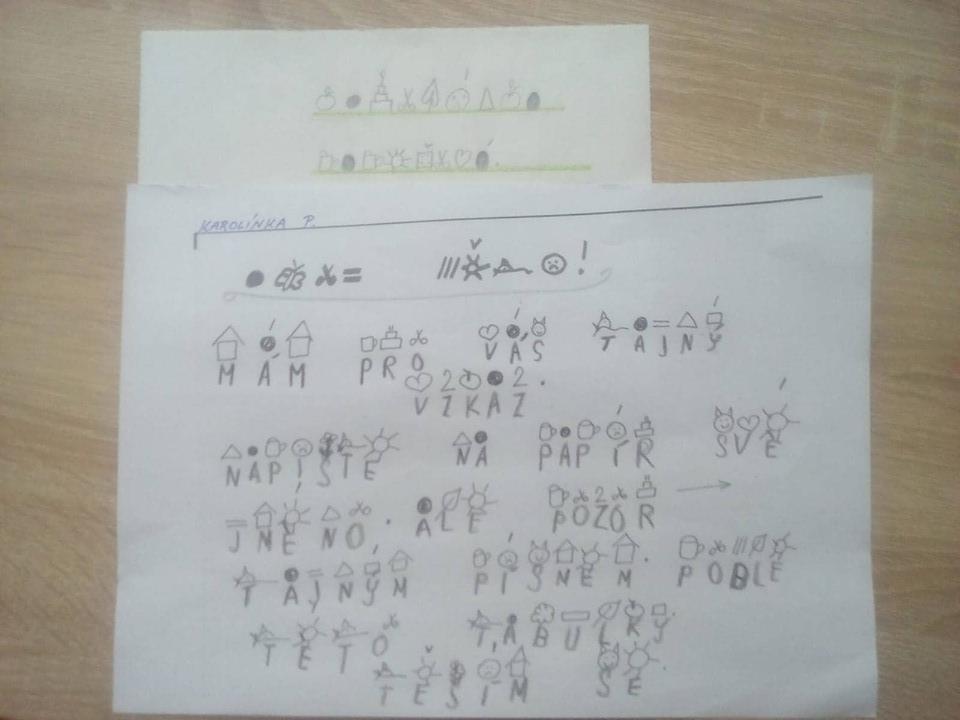 KAROLÍNKA P.
MÁM PRO VÁS TAJNÝ
VZKAZ.
NAPIŠTE NA PAPÍR SVÉ
JMÉNO. ALE, POZOR →
TAJNÝM PÍSMEM. PODLE
TÉTO TABULKY.
TĚŠÍM SE.